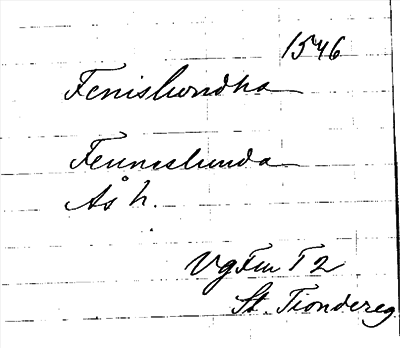 1546
Fenislundha
Fenneslunda
Ås h.
Vg Fm T 2
St. Tiondereg.